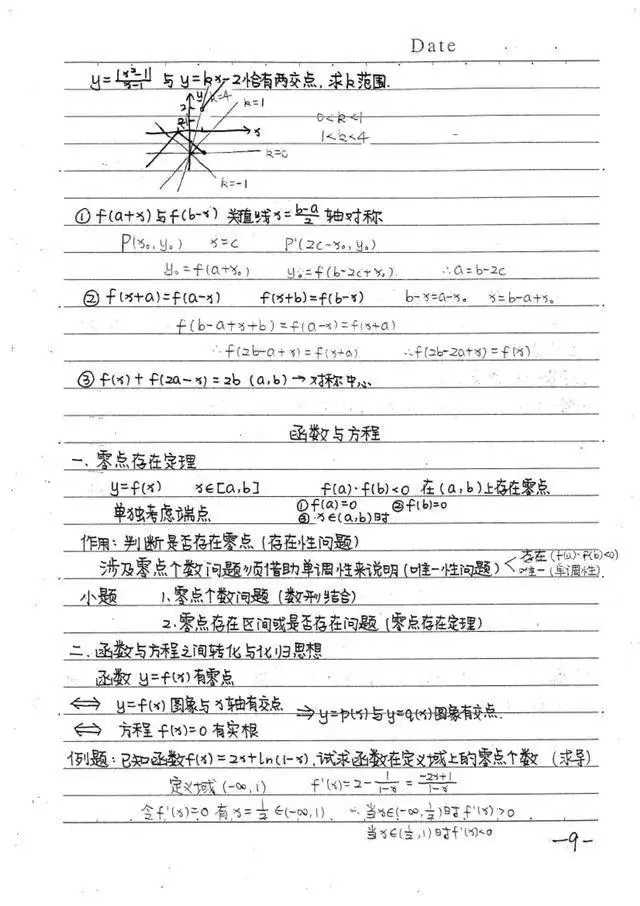 Date
y=|x²-1|/(x-1) 与 y=kx-2恰有两交点, 求k范围.
y k=4
k=1
2
x
0<k<1
1<k<4
k=0
k=-1
① f(a+x)与f(b-x) 关直线x=(b-a)/2 轴对称
P(x₀,y₀) x=c P'(2c-x₀,y₀)
y₀=f(a+x₀) y₀=f(b-2c+x₀) ∴a=b-2c
② f(x+a)=f(a-x) f(x+b)=f(b-x) b-x=a-x₀ x=b-a+x₀
f(b-a+x+b)=f(a-x)=f(x+a)
∴f(2b-a+x)=f(x+a) ∴f(2b-2a+x)=f(x)
③ f(x)+f(2a-x)=2b (a,b)→对称中心
函数与方程
一. 零点存在定理
y=f(x) x∈[a,b] f(a)·f(b)<0 在(a,b)上存在零点
单独考虑端点 ①f(a)=0 ②f(b)=0
③x∈(a,b)时
作用: 判断是否存在零点(存在性问题)
涉及零点个数问题须借助单调性来说明(唯一性问题)< 存在(f(a)·f(b)<0)
唯一(单调性)
小题 1.零点个数问题(数形结合)
2.零点存在区间或是否存在问题(零点存在定理)
二. 函数与方程之间转化与化归思想
函数 y=f(x)有零点
⟺ y=f(x)图象与x轴有交点 ⇒y=p(x)与y=q(x)图象有交点.
⟺ 方程 f(x)=0 有实根
例题: 已知函数f(x)=2x+ln(1-x), 试求函数在定义域上的零点个数 (求导)
定义域(-∞,1) f'(x)=2-1/(1-x)=(-2x+1)/(1-x)
令f'(x)=0 有x=1/2∈(-∞,1) ∴当x∈(-∞,1/2)时f'(x)>0
当x∈(1/2,1)时f'(x)<0
-9-